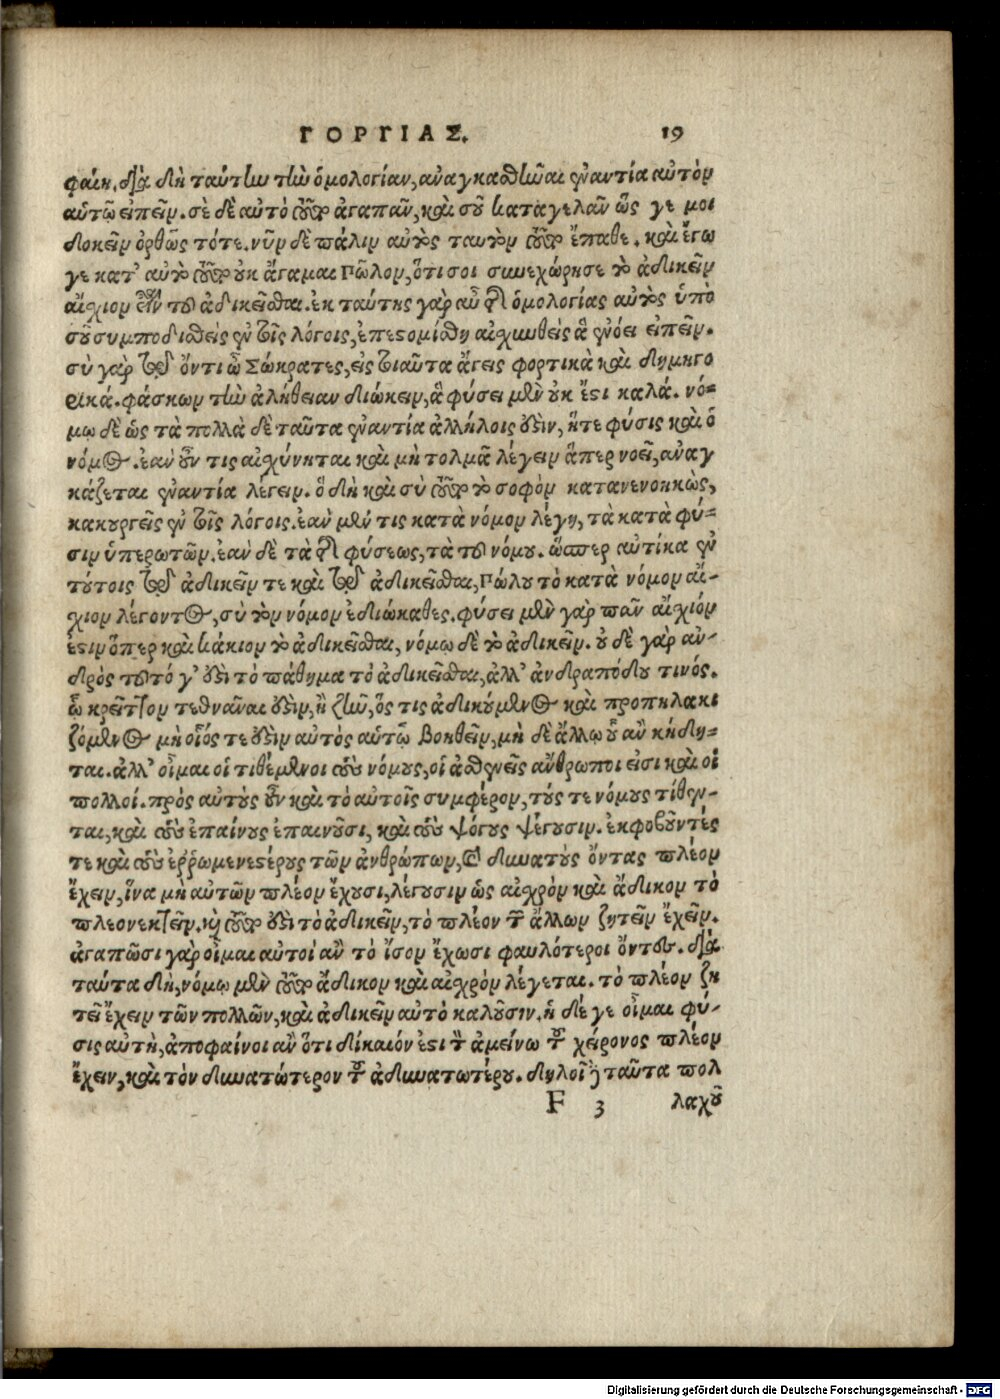 ΓΟΡΓΙΑΣ. 19
φαίη. διὰ δὴ ταύτην τὴν ὁμολογίαν, αναγκασθῆναι ἐναντία αὐτὸν
αὑτῷ εἰπεῖν. σὲ δὲ αὐτὸ τοῦτο ἀγαπᾶν, καὶ σοῦ καταγελᾶν ὥς γε μοι
δοκεῖν ὀρθῶς τότε. νῦν δὲ πάλιν αὐτὸς ταυτὸν τοῦτο ἔπαθε. καὶ ἔγω
γε κατ' αὐτὸ τοῦτο οὐκ ἄγαμαι Πῶλον, ὅτι σοι συνεχώρησε τὸ ἀδικεῖν
αἴσχιον εἶναι τοῦ ἀδικεῖσθαι. ἐκ ταύτης γὰρ αὖ τῆς ὁμολογίας αὐτὸς ὑπὸ
σοῦ συμποδισθεὶς ἐν τοῖς λόγοις, ἐπεστομίσθη αἰσχυνθεὶς ἃ ἐνόει εἰπεῖν.
σὺ γὰρ τῷ ὄντι ὦ Σώκρατες, εἰς τοιαῦτα ἄγεις φορτικὰ καὶ δημηγο
ρικά. φάσκων τὴν ἀλήθειαν διώκειν, ἃ φύσει μὲν οὐκ ἔστι καλά. νό-
μῳ δὲ ὡς τὰ πολλὰ δὲ ταῦτα ἐναντία ἀλλήλοις ἐστὶν, ἥτε φύσις καὶ ὁ
νόμος. ἐαν οὖν τις αἰσχύνηται καὶ μὴ τολμᾶ λέγειν ἅπερ νοεῖ, αναγ
κάζεται ἐναντία λέγειν. ὃ δὴ καὶ σὺ τοῦτο τὸ σοφὸν κατανενοηκὼς,
κακουργεῖς ἐν τοῖς λόγοις. ἐαν μέν τις κατὰ νόμον λέγῃ, τὰ κατὰ φύ-
σιν ὑπερωτῶν. ἐαν δὲ τὰ τῆς φύσεως, τὰ τοῦ νόμου. ὥσπερ αὐτίκα ἐν
τούτοις τῷ ἀδικεῖν τε καὶ τῷ ἀδικεῖσθαι, Πώλου τὸ κατὰ νόμον αἴ-
σχιον λέγοντος, σὺ τὸν νόμον ἐδιώκαθες. φύσει μὲν γὰρ πᾶν αἴσχιόν
ἐστιν ὅπερ καὶ κάκιον τὸ ἀδικεῖσθαι, νόμῳ δὲ τὸ ἀδικεῖν. οὐ δὲ γὰρ αν-
δρὸς τοῦτό γ' ἐστὶ τὸ πάθημα τὸ ἀδικεῖσθαι, ἀλλ' ἀνδραπόδου τινός.
ᾧ κρεῖττον τεθνᾶναι ἐστὶν, ἢ ζῆν, ὅς τις ἀδικούμενος καὶ προπηλακι
ζόμενος μὴ οἷός τε ἐστὶν αὐτὸς αὑτῷ βοηθεῖν, μὴ δὲ ἄλλῳ οὗ αν κήδη-
ται. ἀλλ' οἶμαι οἱ τιθέμενοι τοὺς νόμους, οἱ ἀσθενεῖς ἄνθρωποι εἰσι καὶ οἱ
πολλοί. πρὸς αὐτοὺς οὖν καὶ τὸ αὐτοῖς συμφέρον, τούς τε νόμους τίθεν-
ται, καὶ τοὺς ἐπαίνους ἐπαινοῦσι, καὶ τοὺς ψόγους ψέγουσιν. ἐκφοβοῦντές
τε καὶ τοὺς ἐῤῥωμενεστέρους τῶν ἀνθρώπων, καὶ δυνατοὺς ὄντας πλέον
ἔχειν, ἵνα μὴ αὐτῶν πλέον ἔχουσι, λέγουσιν ὡς αἰσχρὸν καὶ ἄδικον τὸ
πλεονεκτεῖν. καὶ τοῦτο ἐστὶ τὸ ἀδικεῖν, τὸ πλέον τῶν ἄλλων ζητεῖν ἔχειν.
ἀγαπῶσι γὰρ οἶμαι αὐτοὶ αν τὸ ἴσον ἔχωσι φαυλότεροι ὄντες. διὰ
ταύτα δὴ, νόμῳ μὲν τοῦτο ἄδικον καὶ αἰσχρὸν λέγεται. τὸ πλέον ζη
τεῖ ἔχειν τῶν πολλῶν, καὶ ἀδικεῖν αὐτὸ καλοῦσιν. ἡ δέ γε οἶμαι φύ-
σις αὐτὴ, ἀποφαίνοι αν ὅτι δίκαιόν ἐστι τὸν ἀμείνω τοῦ χείρονος πλέον
ἔχειν, καὶ τὸν δυνατώτερον τοῦ ἀδυνατωτέρου. δηλοῖ δὲ ταῦτα πολ
F 3 λαχοῦ